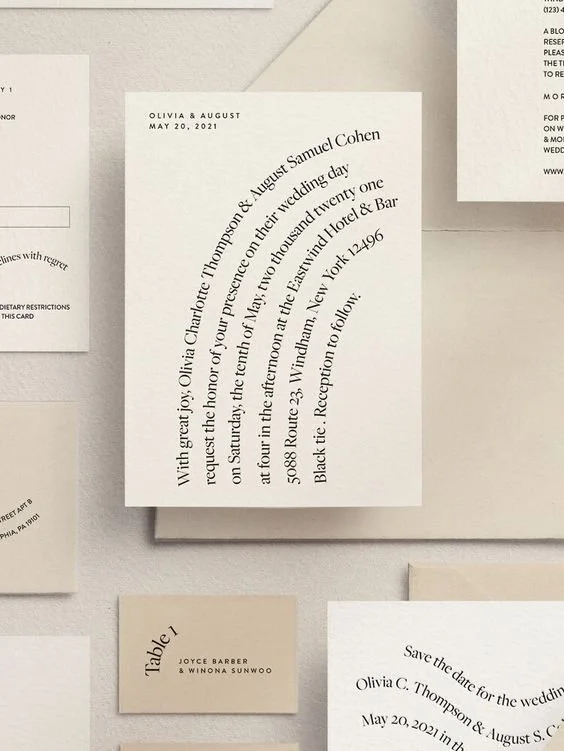 Y 1
ONOR
lines with regret
DIETARY RESTRICTIONS
THIS CARD
OLIVIA & AUGUST
MAY 20, 2021
With great joy, Olivia Charlotte Thompson & August Samuel Cohen
request the honor of your presence on their wedding day
on Saturday, the tenth of May, two thousand twenty one
at four in the afternoon at the Eastwind Hotel & Bar
5088 Route 23, Windham, New York 12496
Black tie . Reception to follow.
(123) 4
A BLO
RESER
PLEAS
THE T
TO RE
MOR
FOR P
ON W
& MO
WEDD
WWW
STREET APT B
PHIA, PA 19101
Table 1
JOYCE BARBER
& WINONA SUNWOO
Save the date for the weddin
Olivia C. Thompson & August S. C
May 20, 2021 in th